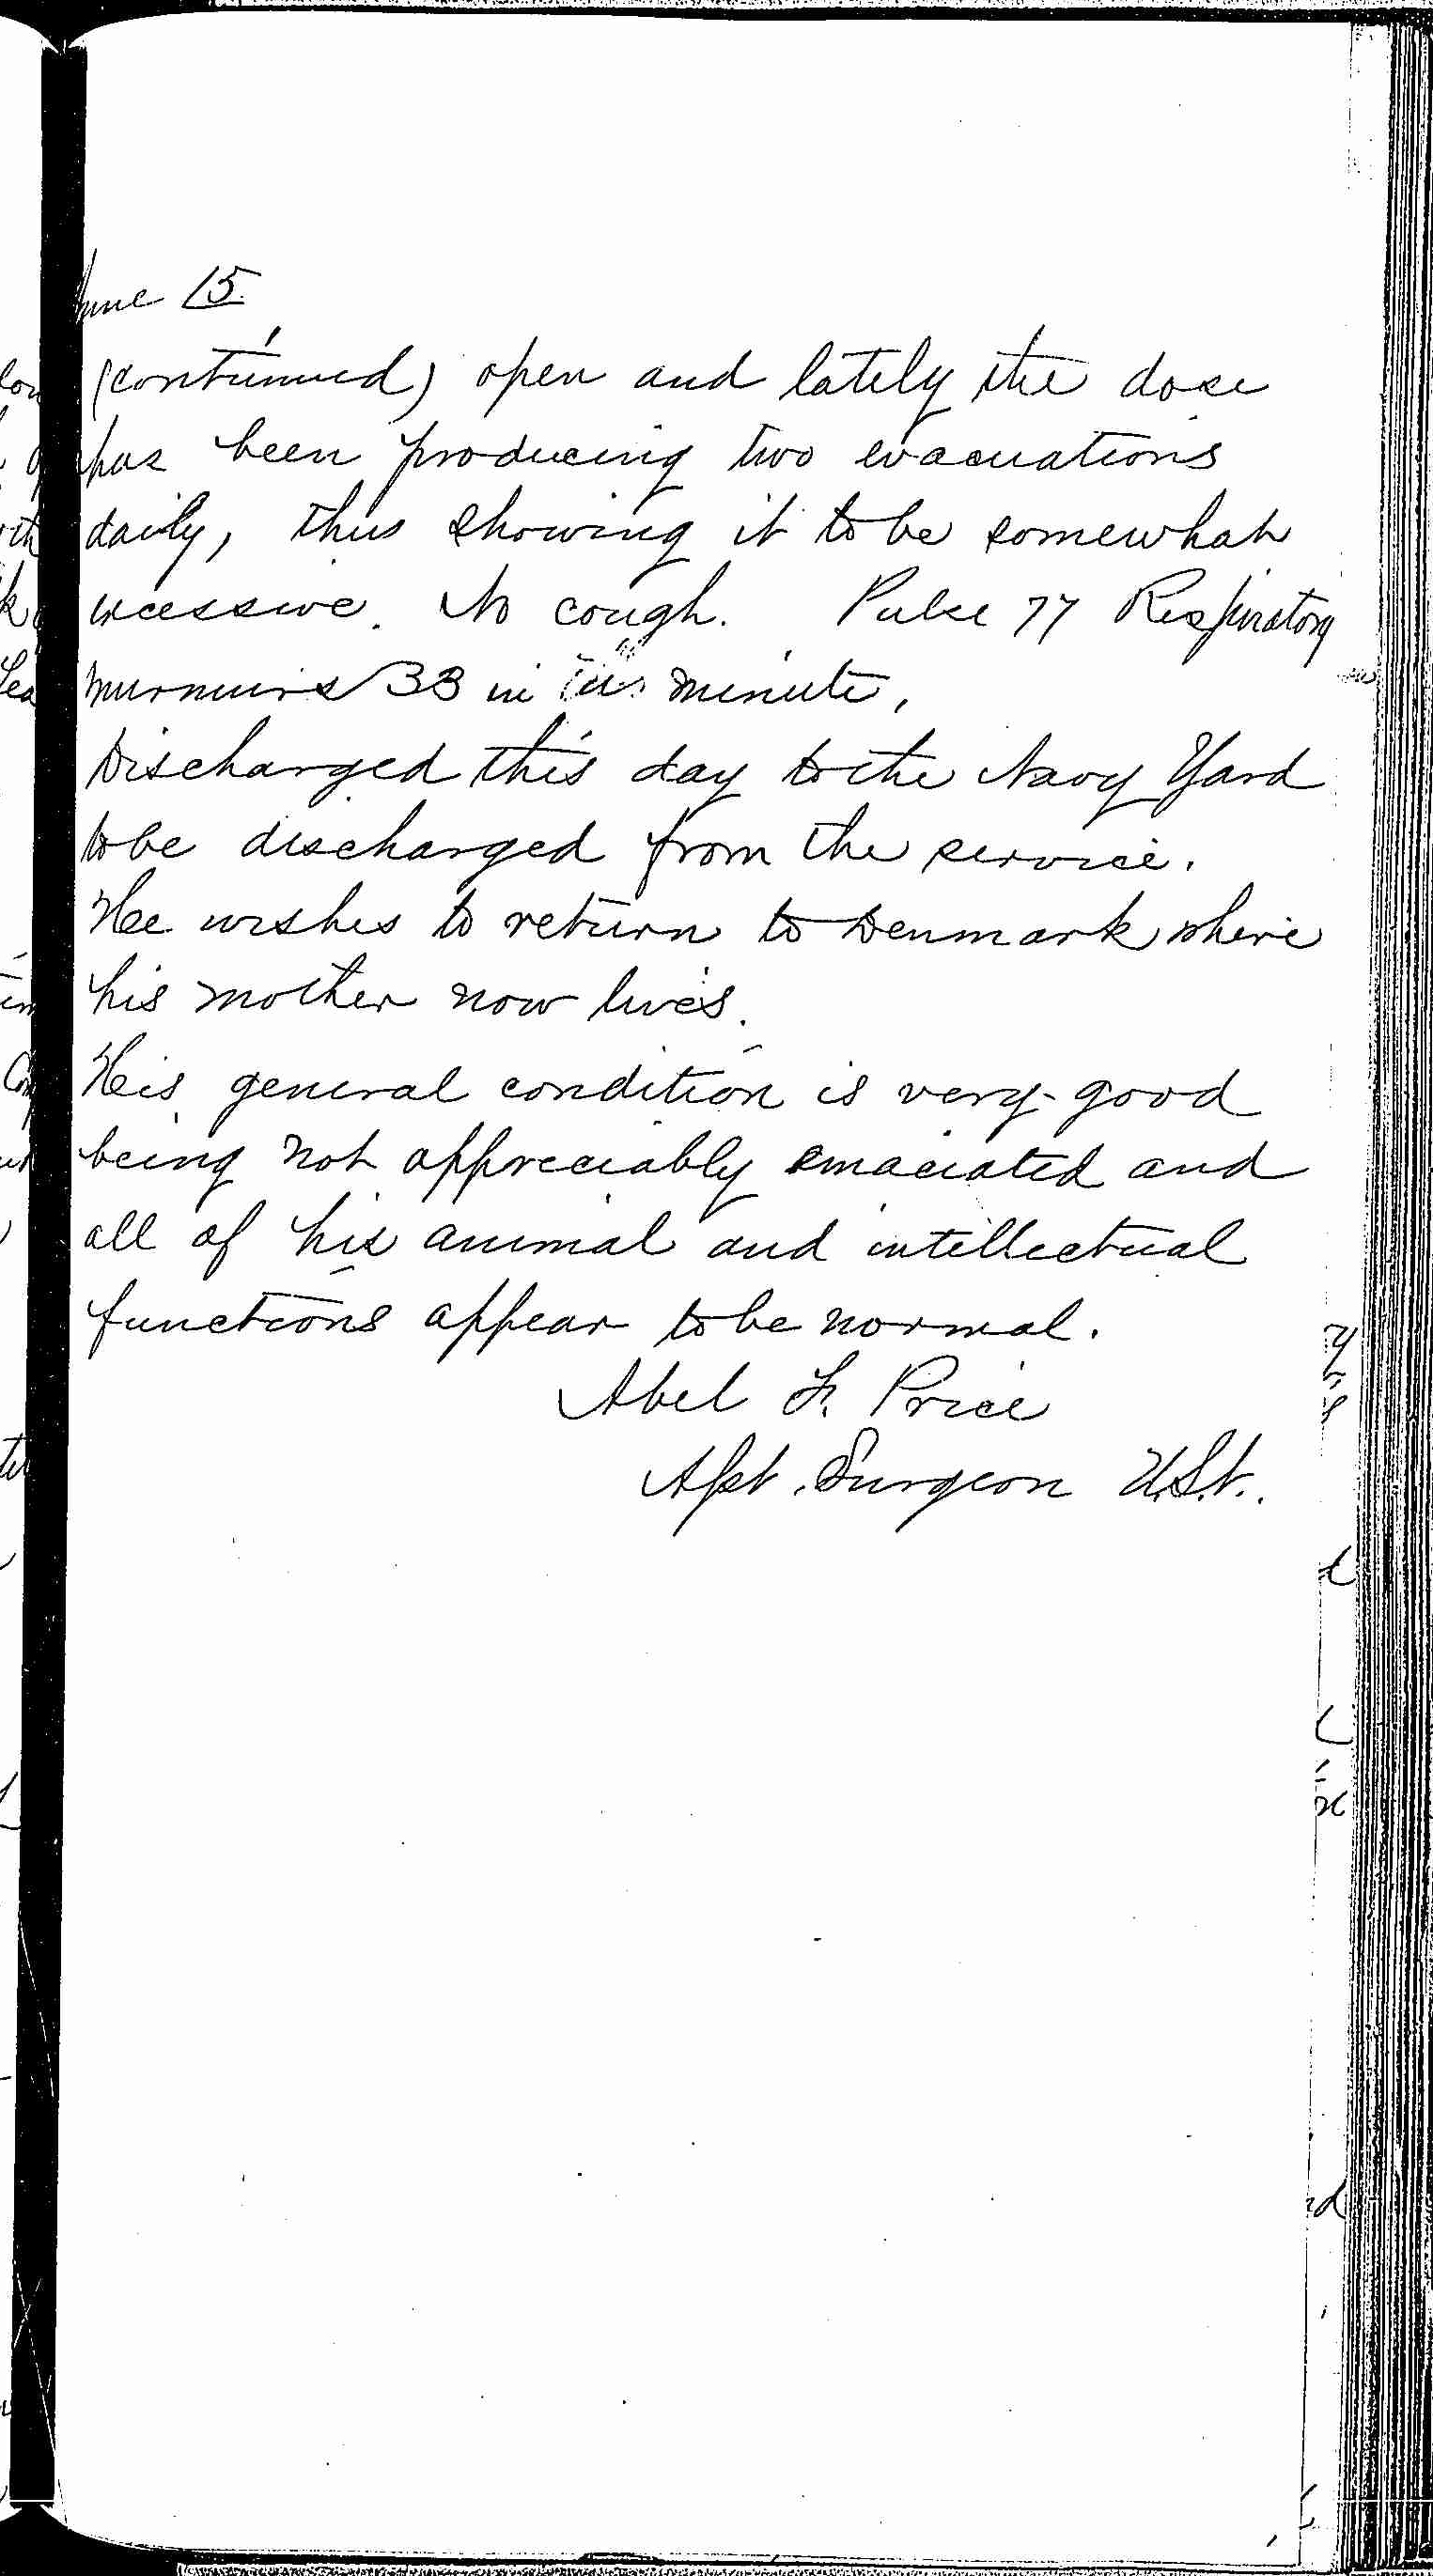 June 15.
(continued) open and lately the dose
has been producing two evacuations
daily, thus showing it to be somewhat
excessive. No cough. Pulse 77 Respiratory
murmurs 33 in a minute,
Discharged this day to the Navy Yard
to be discharged from the service.
He wishes to return to Denmark where
his mother now lives.
His general condition is very good
being not appreciably emaciated and
all of his animal and intellectual
functions appear to be normal.
Abel F. Price
Asst. Surgeon U.S.N.